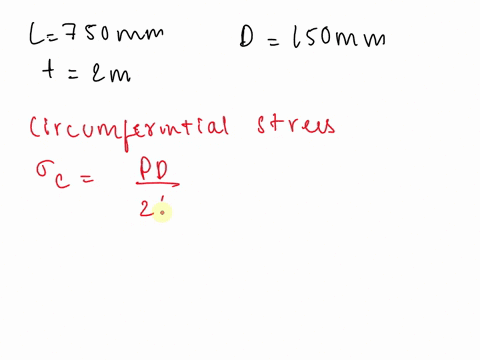 L=750mm D = 150mm
t = 2m
Circumferintial stress
σc = PD
2